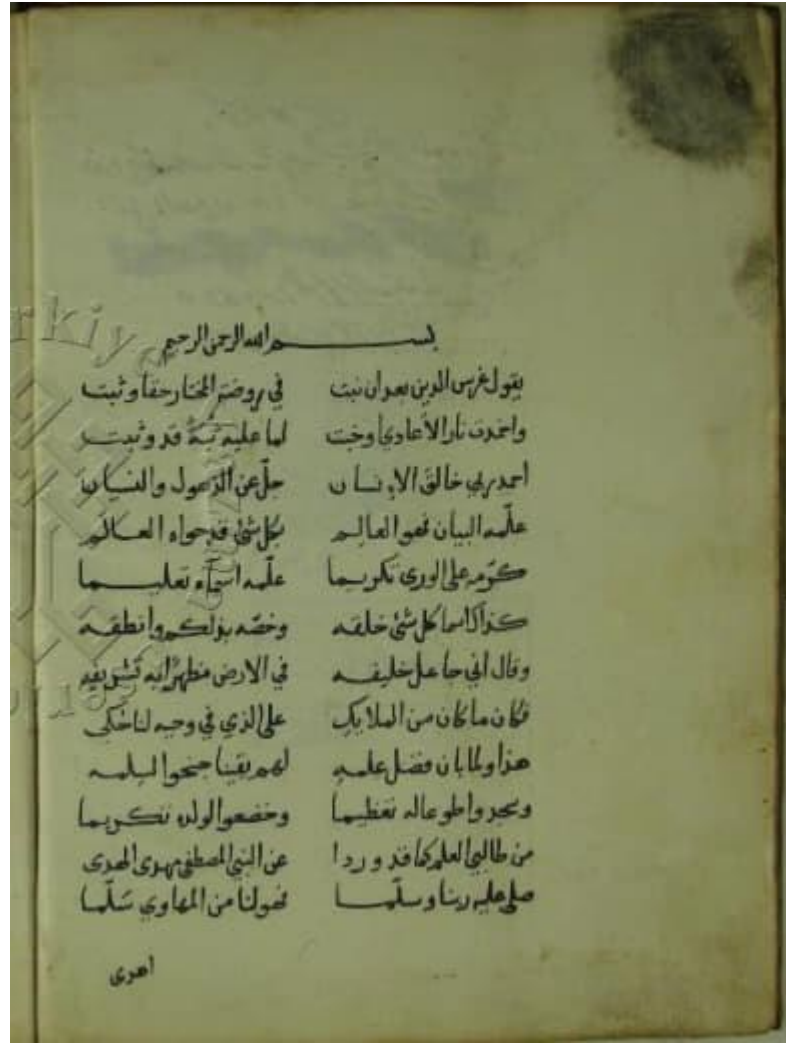 بسم الله الرحمن الرحيم
يقول غرس الدين بعد ان نبت في روضة المختار حقا وثبت
واخمدت نار الاعادي اوخبت لما عليه قد وثبت
احمد ربي خالق الانسان جلّ عن الذهول والنسيان
علّمه البيان فهو العالم بكل شئ قد حواه العالم
كرّمه على الورى تكريما علّمه اسمآء تعليما
كذاك اسما كل شئ خلقه وخصّه بذلكم وانطقه
وقال اني جاعل خليفه في الارض مظهرًا به تشريفه
فكان ما كان من الملايك على الذي في وحيه لنا حكي
هذا ولما بان فضل علمه لهم يقينا جنحوا لسلمه
وسجدوا طوعا له تعظيما وخضعوا لولده تكريما
من طالبي العلم كما قد وردا عن النبي المصطفى مهدى الهدى
صلى عليه ربنا وسلّما فهو لنا من المهاوي سُلّما
اهدى